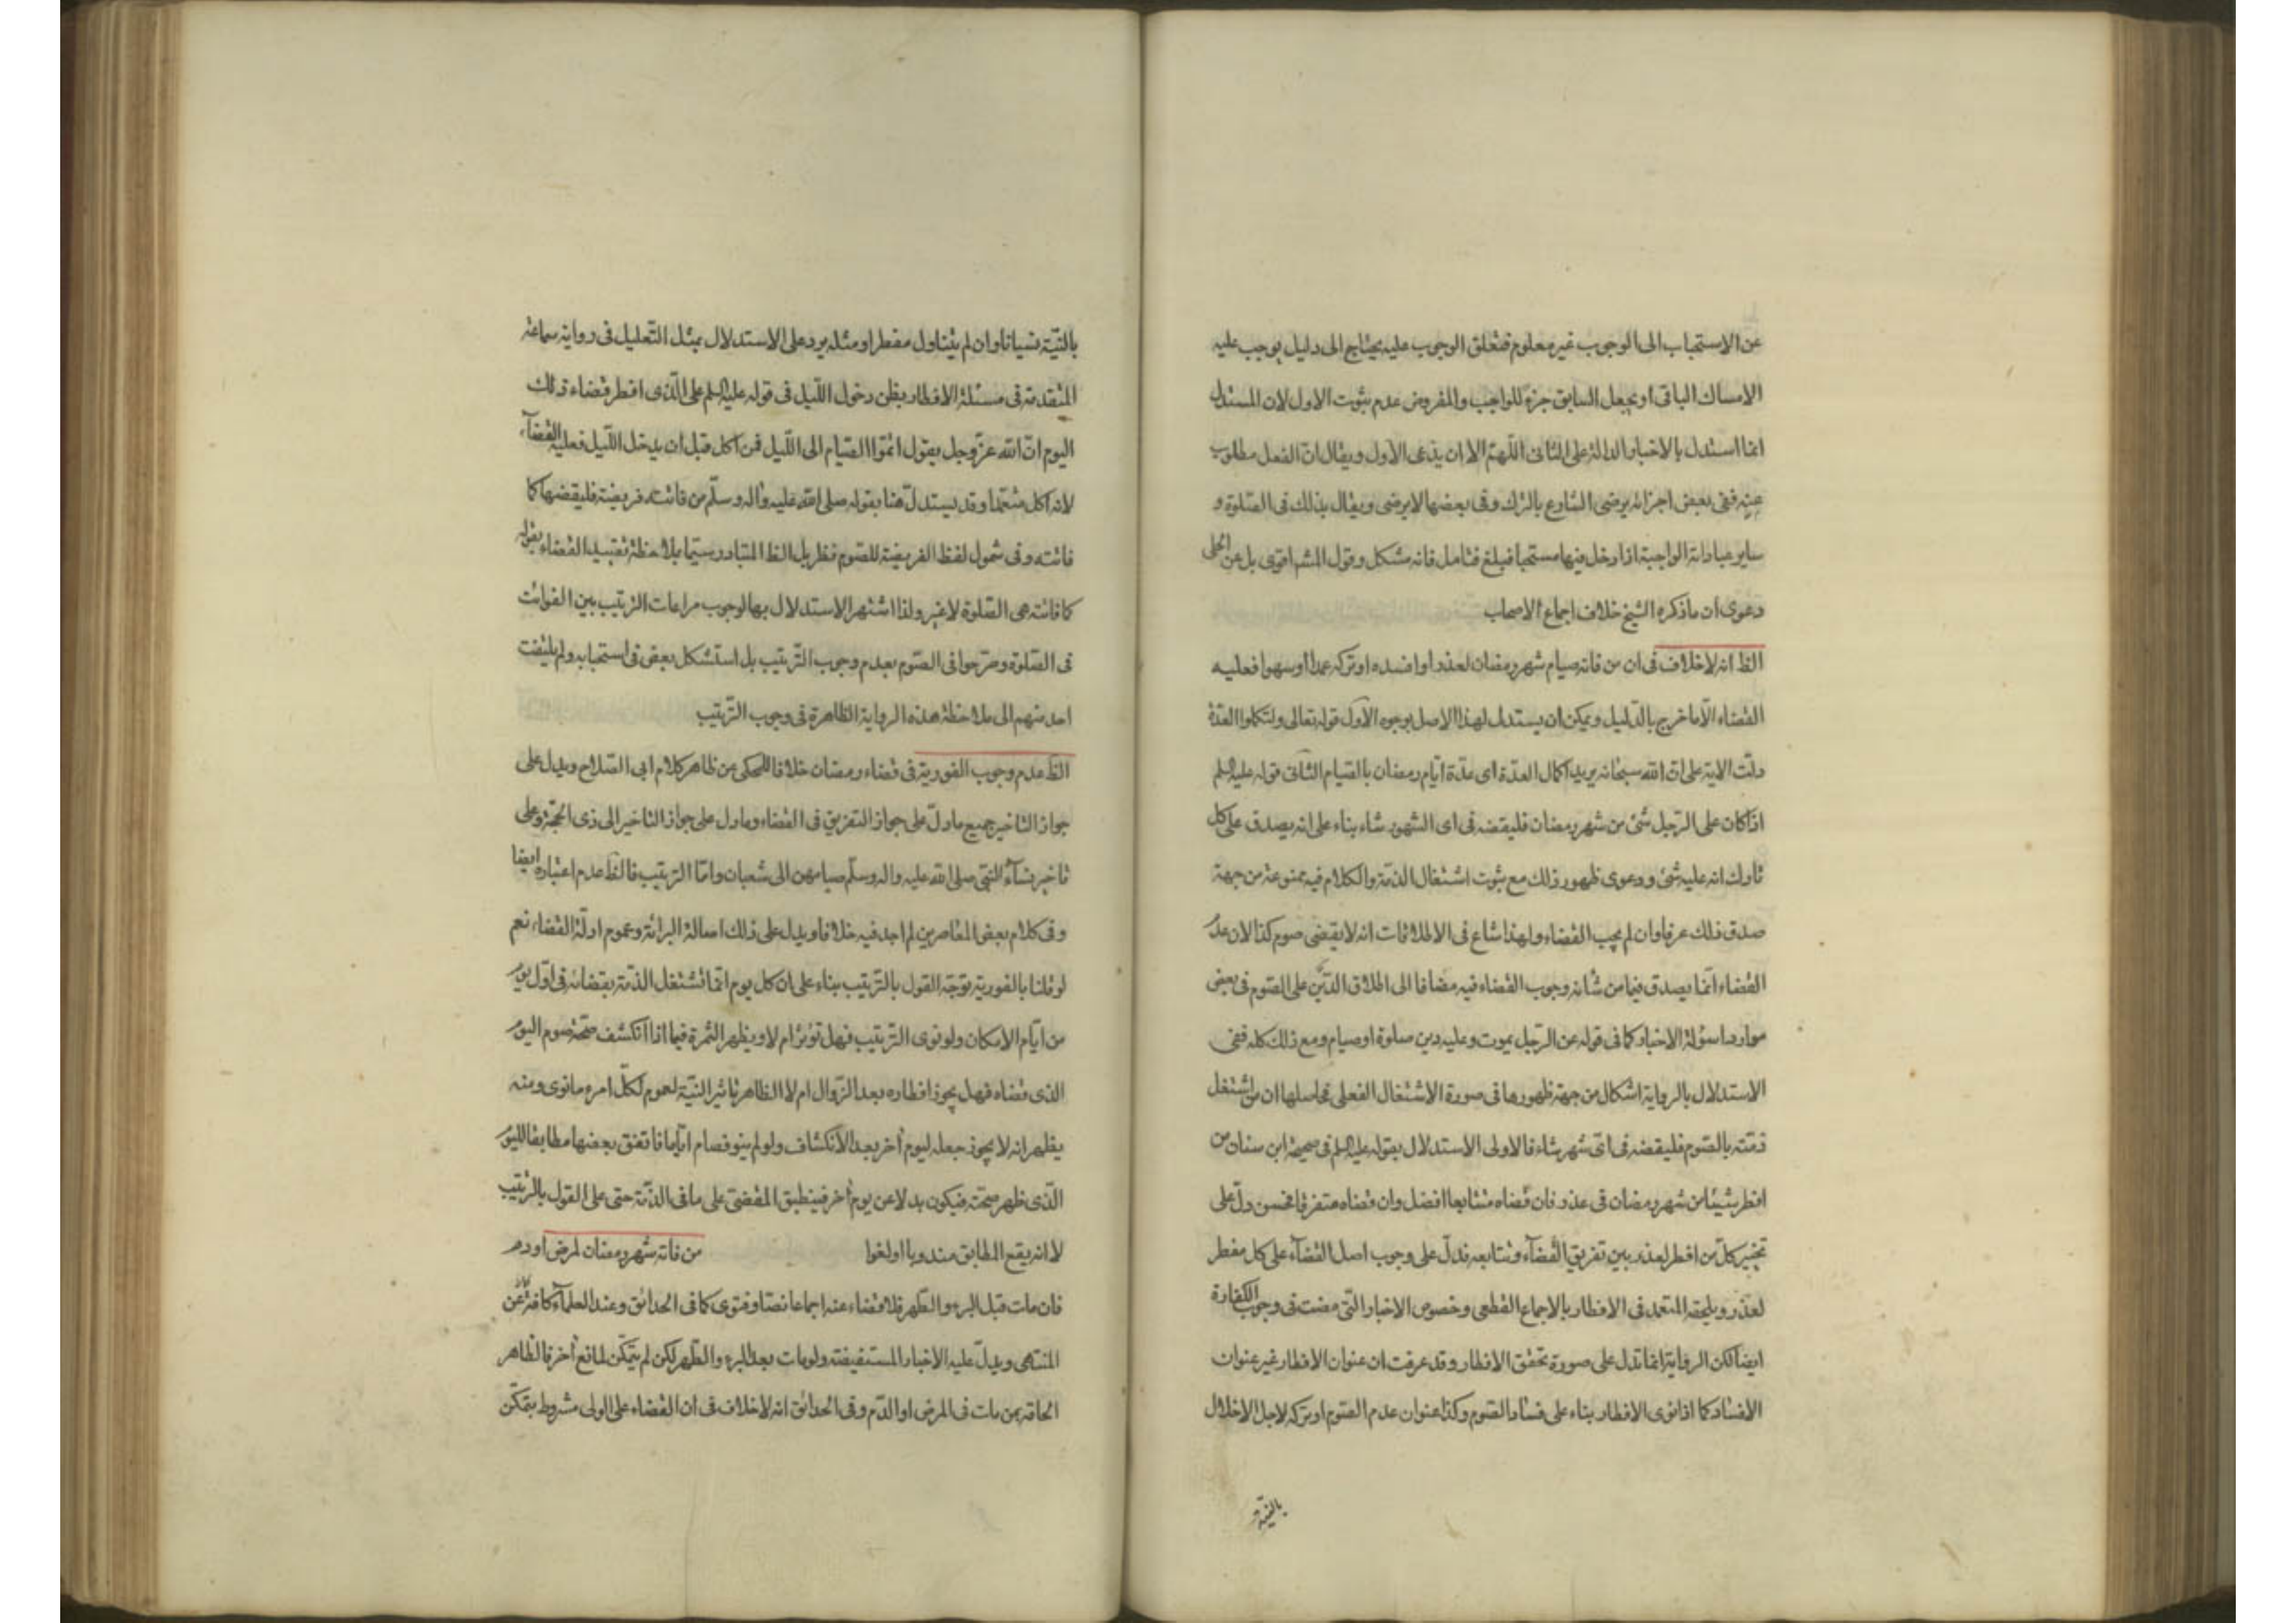 عن الاستحباب الى الوجوب غير معلوم فتعلق الوجوب عليه يحتاج الى دليل يوجب عليه
الامساك الباقى او يجعل السابق جزء للواجب والمفروض عدم ثبوت الاول لان المستدل
انما استدل بالاخبار الدالة على الثانى اللهم الا ان يدعى الاول ويقال ان الفعل مطلوب
عنه ففى بعض اجزائه يرضى الشارع بالترك وفى بعضها لا يرضى ويقال بذلك فى الصلوة و
ساير عباداته الواجبة اذا دخل فيها مستحبا فبلغ فتامل فانه مشكل وقول المشهم اقوى بل عن الحلى
دعوى ان ما ذكره الشيخ خلاف اجماع الاصحاب
الظ انه لاخلاف فى ان من فاته صيام شهر رمضان لعذر او افسده او تركه عمدا او سهوا فعليه
القضاء الّا ما خرج بالدّليل ويمكن ان يستدل لهذا الاصل بوجوه الاوّل قوله تعالى ولتكملوا العدّة
دلّت الاية على انّ الله سبحانه يريد اكمال العدّة اى عدّة ايّام رمضان بالقيام الثانى قوله عليه السلم
اذا كان على الرّجل شئ من شهر رمضان فليقضه فى اى الشهور شاء بناء على انه يصدق على كل
تارك انه عليه شئ ودعوى ظهور ذلك مع ثبوت اشتغال الذمّة والكلام فيه ممنوعة من جهة
صدق ذلك عرفا وان لم يجب القضاء ولهذا شاع فى الاطلاقات انه لا يقضى صوم كذا لان عدم
القضاء انّما يصدق فيما من شانه وجوب القضاء فيه مضافا الى اطلاق الدّين على الصّوم فى بعض
موارد اسؤلة الاخبار كما فى قوله عن الرّجل يموت وعليه دين صلوة او صيام ومع ذلك كله ففى
الاستدلال بالرواية اشكال من جهة ظهورها فى صورة الاشتغال الفعلى فحاصلها ان من اشتغل
ذمّته بالصّوم فليقضه فى اىّ شهر شاء فالاولى الاستدلال بقوله عليه السلم فى صحيحة ابن سنان من
افطر شيئا من شهر رمضان فى عذر فان قضاه متتابعا افضل وان قضاه متفرقا فحسن دلّ على
تخيير كلّ من افطر لعذر بين تفريق القضاء وتتابعه فدلّ على وجوب اصل القضاء على كل مفطر
لعذر ويلحقه المتعمد فى الافطار بالاجماع القطعى وخصوص الاخبار التى مضت فى وجوب الكفارة
ايضا لكن الرواية انما تدل على صورة تحقق الافطار وقد عرفت ان عنوان الافطار غير عنوان
الافساد كما اذا نوى الافطار بناء على فساد الصّوم وكذا عنوان عدم الصّوم او تركه لاجل الاخلال
بالنيّة
بالنّيّة نسيانا وان لم يتناول مفطرا ومثله يرد على الاستدلال بمثل التّعليل فى رواية سماعة
المتقدمة فى مسئلة الافطار بظن دخول اللّيل فى قوله عليه السلم على الّذى افطر قضاء ذلك
اليوم انّ الله عزّ وجل يقول اتمّوا الصّيام الى اللّيل فمن اكل قبل ان يدخل اللّيل فعليه القضاء
لانه اكل متعمّدا وقد يستدلّ هنا بقوله صلى الله عليه واله وسلّم من فاتته فريضة فليقضها كما
فاتته وفى شمول لفظ الفريضة للصّوم نظر بل الظ المتبادر سيّما بملاحظة تقييد القضاء بقوله
كما فاتته هى الصّلوة لاغير ولذا اشتهر الاستدلال بها لوجوب مراعات الترتيب بين الفوائت
فى الصّلوة وصرّحوا فى الصّوم بعدم وجوب التّرتيب بل استشكل بعض فى استحبابه ولم يلتفت
احد منهم الى ملاحظة هذه الرواية الظاهرة فى وجوب التّرتيب
الظ عدم وجوب الفورية فى قضاء رمضان خلافا للمحكى عن ظاهر كلام ابى الصّلاح ويدل على
جواز التاخير جميع ما دلّ على جواز التفريق فى القضاء وما دل على جواز التاخير الى ذى الحجّة وعلى
تاخير نساء النّبى صلى الله عليه واله وسلّم صيامهن الى شعبان وامّا الترتيب فالظ عدم اعتباره ايضا
وفى كلام بعض المعاصرين لم اجد فيه خلافا ويدل على ذلك اصالة البرائة وعموم ادلّة القضاء نعم
لو قلنا بالفورية توجّه القول بالتّرتيب بناء على ان كل يوم انّما تشتغل الذمّة بقضائه فى اوّل يوم
من ايّام الامكان ولو نوى التّرتيب فهل تؤثر ام لا ويظهر الثمرة فيما اذا انكشف صحّة صوم اليوم
الذى قضاه فهل يجوز افطاره بعد الزّوال ام لا الظاهر تاثير النّيّة لعموم لكلّ امرء ما نوى ومنه
يظهر انه لا يجوز جعله ليوم آخر بعد الانكشاف ولو لم ينو فصام ايّاما فاتفق بعضها مطابقا لليوم
الّذى ظهر صحّته فيكون بدلا عن يوم آخر فينطبق المقضى على ما فى الذمّة حتى على القول بالترتيب
لا انه يقع المطابق مندوبا او لغوا من فاته شهر رمضان لمرض او دم
فان مات قبل البرء والطّهر فلا قضاء عنه اجماعا نصّا وفتوى كما فى الحدائق وعند العلماء كافة كما عن
المنتهى ويدلّ عليه الاخبار المستفيضة ولو مات بعد البرء والطّهر لكن لم يتمكّن لمانع آخر فالظاهر
الحاقه بمن مات فى المرض او الدّم وفى الحدائق انه لاخلاف فى ان القضاء على الولى مشروط بتمكّن